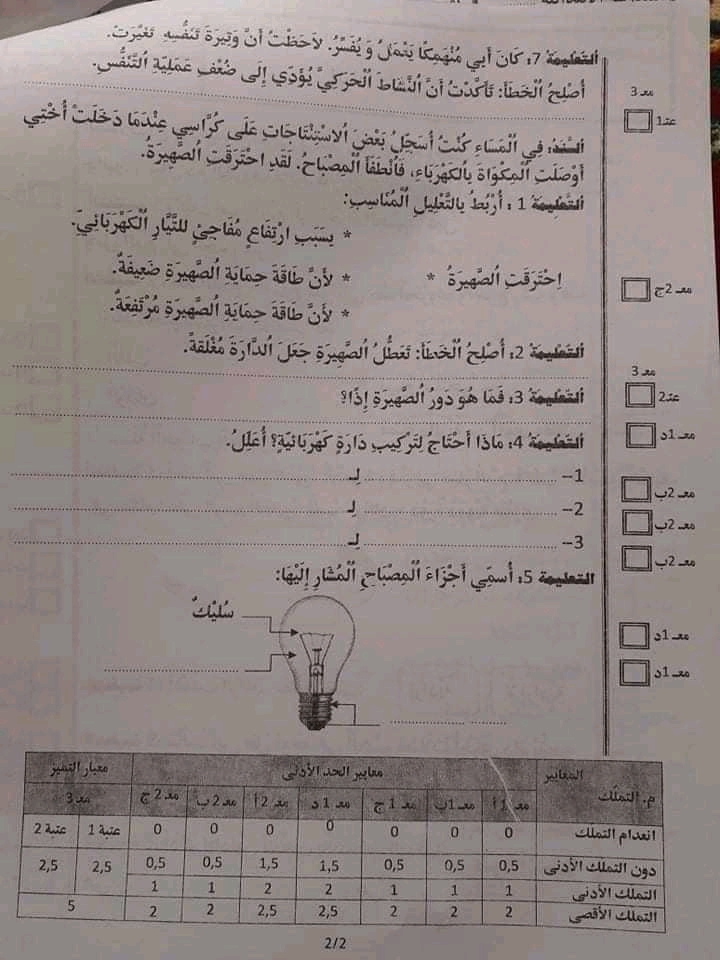 التعليمة 7: كَانَ أَبِي مُنْهَمِكًا يَتَأَمَّلُ وَ يُفَسِّرُ. لاَحَظْتُ أَنَّ وَتِيرَةَ تَنَفُّسِهِ تَغَيَّرَتْ.
أُصْلِحُ اُلْخَطَأَ: تَأَكَّدْتُ أَنَّ اُلنَّشَاطَ اُلْحَرَكِيَّ يُؤَدِّي إِلَى ضُعْفِ عَمَلِيَّةِ اُلتَّنَفُّسِ.
معـ 3
عتـ1
السّند: فِي اُلْمَسَاءِ كُنْتُ أُسَجِّلُ بَعْضَ اُلاسْتِنْتَاجَاتِ عَلَى كُرَّاسِي عِنْدَمَا دَخَلَتْ أُخْتِي
أَوْصَلَتِ اُلْمِكْوَاةَ بِالْكَهْرَبَاءِ، فَانْطَفَأَ اُلْمِصْبَاحُ. لَقَدِ احْتَرَقَتِ اُلصَّهِيرَةُ.
التعليمة 1 : أَرْبُطُ بِالتَّعْلِيلِ اُلْمُنَاسِبِ:
* بِسَبَبِ ارْتِفَاعٍ مُفَاجِئٍ لِلتَّيَّارِ اُلْكَهْرَبَائِيِّ.
اِحْتَرَقَتِ اُلصَّهِيرَةُ * * لأَنَّ طَاقَةَ حِمَايَةِ اُلصَّهِيرَةِ ضَعِيفَةٌ.
معـ 2ج
* لأَنَّ طَاقَةَ حِمَايَةِ اُلصَّهِيرَةِ مُرْتَفِعَةٌ.
التعليمة 2: أُصْلِحُ اُلْخَطَأَ: تَعَطُّلُ اُلصَّهِيرَةِ جَعَلَ اُلدَّارَةَ مُغْلَقَةً.
معـ 3
عتـ2
التعليمة 3: فَمَا هُوَ دَوْرُ اُلصَّهِيرَةِ إِذًا؟
معـ 1د
التعليمة 4: مَاذَا أَحْتَاجُ لِتَرْكِيبِ دَارَةٍ كَهْرَبَائِيَّةٍ؟ أُعَلِّلُ.
1– لِـ
معـ 2ب
2– لِـ
معـ 2ب
3– لِـ
معـ 2ب
التعليمة 5: أُسَمِّي أَجْزَاءَ اُلْمِصْبَاحِ اُلْمُشَارِ إِلَيْهَا:
سُلَيْكٌ
معـ 1د
معـ 1د
المعايير معايير الحد الأدنى معيار التميز
م. التملك معـ 1 أ معـ 1ب معـ 1 ج معـ 1 د معـ 2 أ معـ 2 ب معـ 2 ج معـ 3
انعدام التملك 0 0 0 0 0 0 0 عتبة 1 عتبة 2
دون التملك الأدنى 0,5 0,5 0,5 1,5 1,5 0,5 0,5 2,5 2,5
التملك الأدنى 1 1 1 2 2 1 1
التملك الأقصى 2 2 2 2,5 2,5 2 2 5
2/2